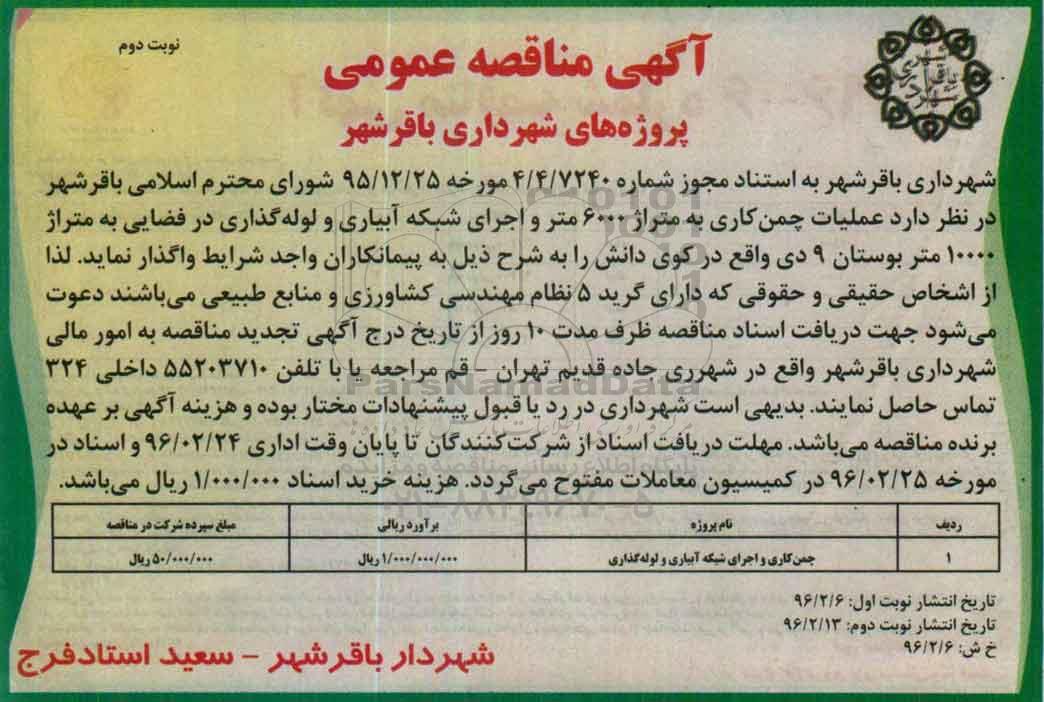 نوبت دوم
آگهی مناقصه عمومی
پروژه‌های شهرداری باقرشهر
شهرداری باقرشهر
شهرداری باقرشهر به استناد مجوز شماره ۴/۴/۷۲۴۰ مورخه ۹۵/۱۲/۲۵ شورای محترم اسلامی باقرشهر
در نظر دارد عملیات چمن‌کاری به متراژ ۶۰۰۰ متر و اجرای شبکه آبیاری و لوله‌گذاری در فضایی به متراژ
۱۰۰۰۰ متر بوستان ۹ دی واقع در کوی دانش را به شرح ذیل به پیمانکاران واجد شرایط واگذار نماید. لذا
از اشخاص حقیقی و حقوقی که دارای گرید ۵ نظام مهندسی کشاورزی و منابع طبیعی می‌باشند دعوت
می‌شود جهت دریافت اسناد مناقصه ظرف مدت ۱۰ روز از تاریخ درج آگهی تجدید مناقصه به امور مالی
شهرداری باقرشهر واقع در شهرری جاده قدیم تهران - قم مراجعه یا با تلفن ۵۵۲۰۳۷۱۰ داخلی ۳۲۴
تماس حاصل نمایند. بدیهی است شهرداری در رد یا قبول پیشنهادات مختار بوده و هزینه آگهی بر عهده
برنده مناقصه می‌باشد. مهلت دریافت اسناد از شرکت‌کنندگان تا پایان وقت اداری ۹۶/۰۲/۲۴ و اسناد در
مورخه ۹۶/۰۲/۲۵ در کمیسیون معاملات مفتوح می‌گردد. هزینه خرید اسناد ۱/۰۰۰/۰۰۰ ریال می‌باشد.
ParsNamadData
پایگاه اطلاع رسانی مناقصه و مزایده
ردیف نام پروژه برآورد ریالی مبلغ سپرده شرکت در مناقصه
۱ چمن‌کاری و اجرای شبکه آبیاری و لوله‌گذاری ۱/۰۰۰/۰۰۰/۰۰۰ ریال ۵۰/۰۰۰/۰۰۰ ریال
تاریخ انتشار نوبت اول: ۹۶/۲/۶
تاریخ انتشار نوبت دوم: ۹۶/۲/۱۳
خ ش: ۹۶/۲/۶
شهردار باقرشهر - سعید استادفرج